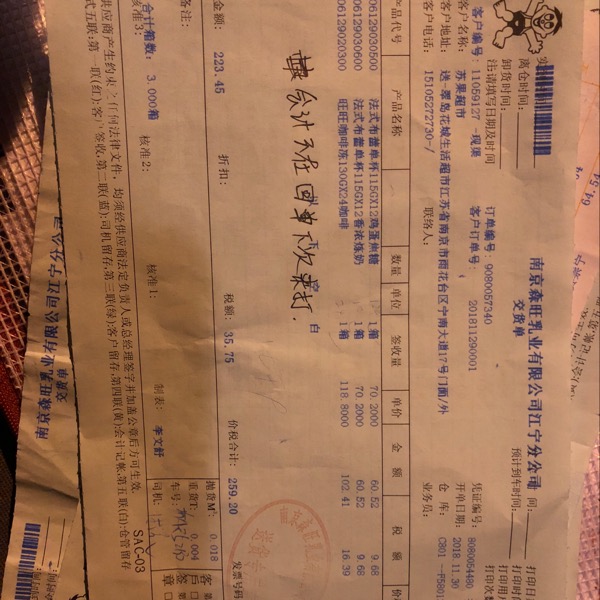 南京森旺乳业有限公司江宁分公司
交货单
离仓时间:
卸货时间:
注:请填写日期及时间
预计到车时间:
客户编号: 11059127 -现渠
订单编号: 9080057340
凭证编号: 8080054480
客户名称: 苏果超市
客户订单号: 201811290001
开单日期: 2018.11.30
客户地址: 送-翠岛花城生活超市江苏省南京市雨花台区宁南大道17号门面/外
仓 库: C801
客户电话: 15105272730-/
联络人:
业务员:
产品代号 产品名称 数量 单位 签收量 单价 金 额 税 额
06129030600 法式布蕾单杯115GX12鸡蛋焦糖 1 箱 70.2000 60.52 9.68
06129030600 法式布蕾单杯115GX12香浓炼奶 1 箱 70.2000 60.52 9.68
06129020300 旺旺咖啡冻130GX24咖啡 1 箱 118.8000 102.41 16.39
会计不在 回单下次来打.
白
金额: 223.45 折扣: 税额: 35.75 价税合计: 259.20
备注:
合计箱数: 3.000箱
抛货M³: 0.018
重货T: 0.004
核准3: 核准2: 核准1: 制表: 李文舒
车号:
司机:
供应商产生约束之任何法律文件, 均须经供应商法定负责人或总经理签字并加盖公章后方可生效.
式五联:第一联(红):客户签收,第二联(蓝):司机留存,第三联(绿):客户留存,第四联(黄):会计记帐,第五联(白):仓管留存
SAC-03
南京森旺乳业有限公司江宁分公司
交货单